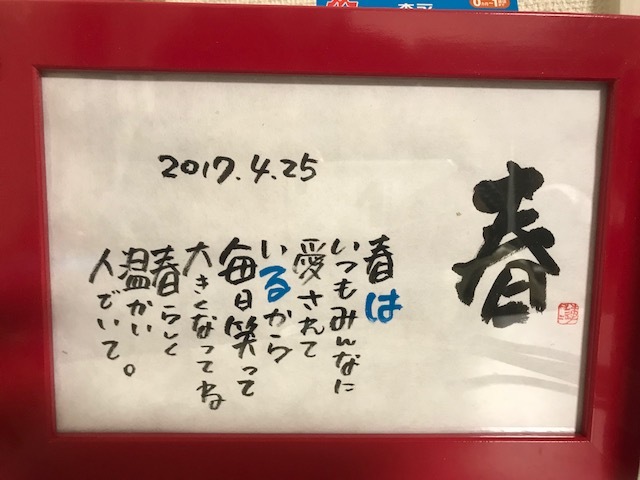 春
春は
いつもみんなに
愛されて
いるから
毎日笑って
大きくなってね
春らしく
温かい
人でいて。
2017.4.25